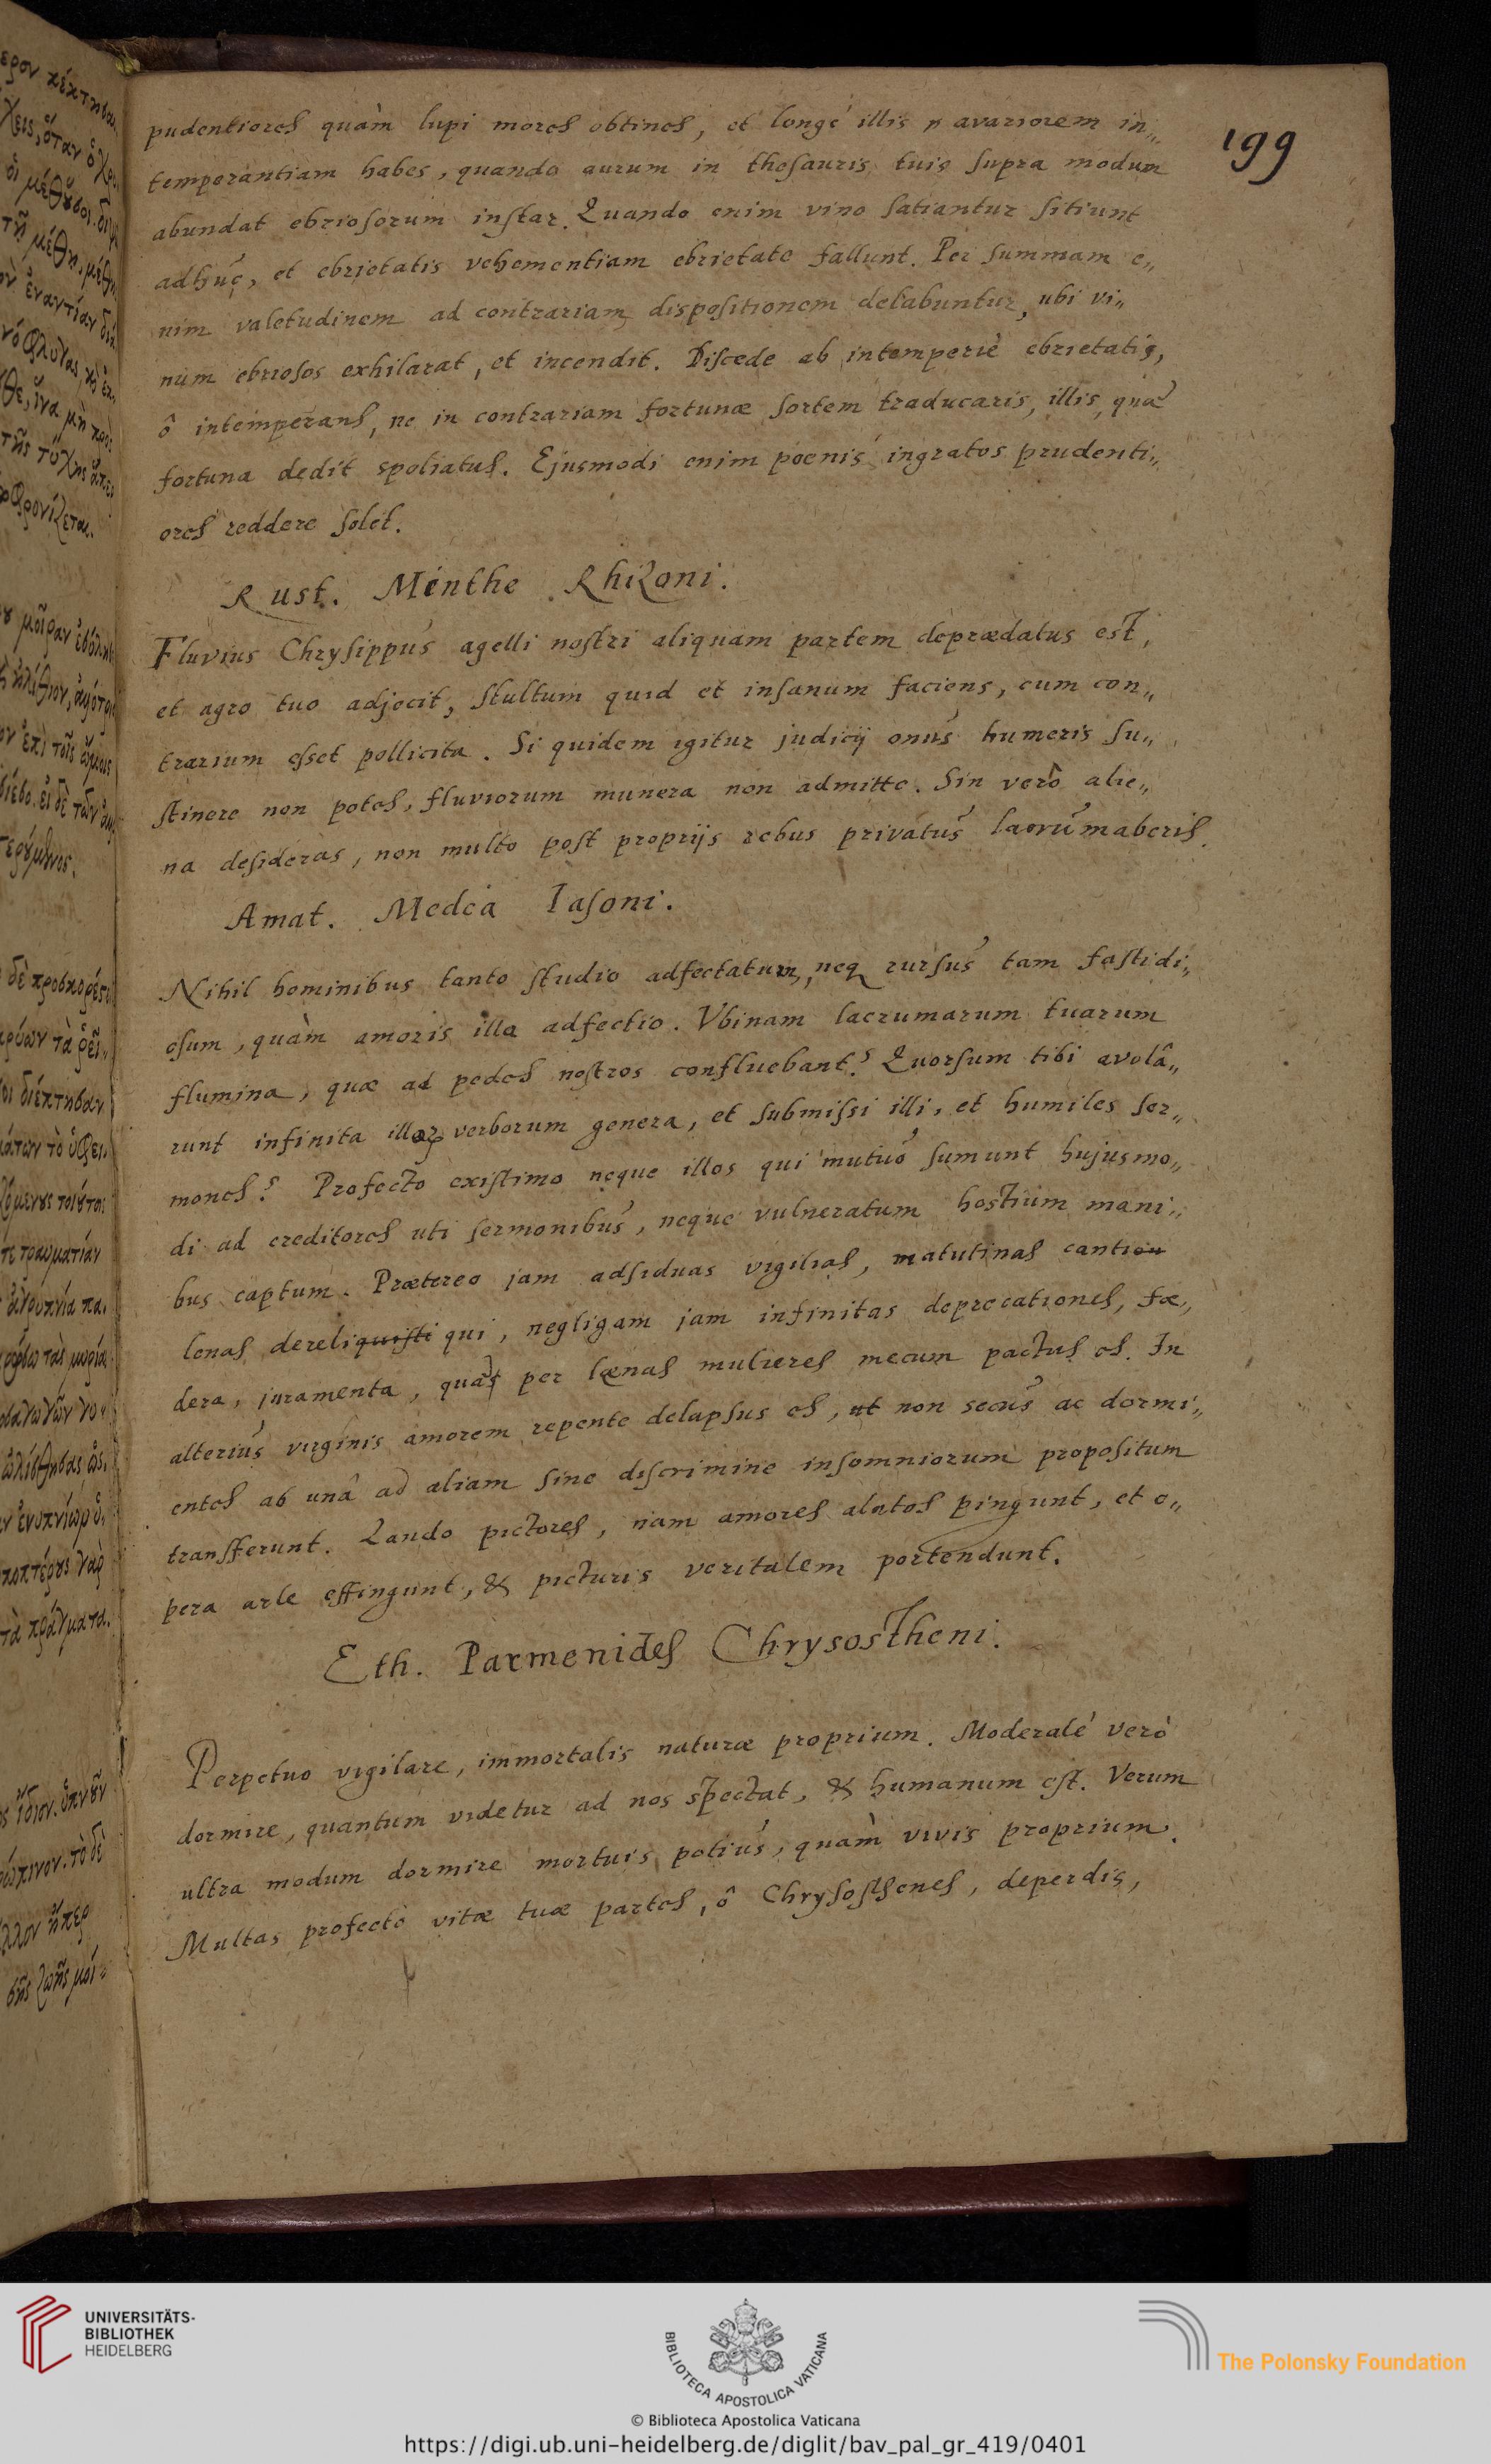 199
pudentiores quàm lupi mores obtines, et longé illis avariorem in„
temperantiam habes, quando aurum in thesauris tuis supra modum
abundat ebriosorum instar. Quando enim vino satiantur sitiunt
adhuc, et ebrietatis vehementiam ebrietate fallunt. Per summam e„
nim valetudinem ad contrariam dispositionem delabuntur, ubi vi„
num ebriosos exhilarat, et incendit. Discede ab intemperiè ebrietatis,
ô intemperans, ne in contrariam fortunæ sortem traducaris, illis, quæ
fortuna dedit spoliatus. Ejusmodi enim poenis ingratos prudenti„
ores reddere solet.
Rust. Minthe Rhizoni.
Fluvius Chrysippus agelli nostri aliquam partem deprædatus est,
et agro tuo adjecit, stultum quid et insanum faciens, cum con„
trarium esset pollicita. Si quidem igitur judicij onus humeris su„
stinere non potes, fluviorum munera non admitte. Sin verò alie„
na desideras, non multo post proprijs rebus privatus lacrumaberis.
Amat. Medea Iasoni.
Nihil hominibus tanto studio adfectatum, neq rursus tam fastidi„
osum, quàm amoris illa adfectio. Vbinam lacrumarum tuarum
flumina, quæ ad pedes nostros confluebant? Quorsum tibi avolâ„
runt infinita illa verborum genera, et submissi illi, et humiles ser„
mones? Profecto existimo neque illos qui mutuò sumunt hujusmo„
di ad creditores uti sermonibus, neque vulneratum hostium mani„
bus captum. Prætereo jam adsiduas vigilias, matutinas canti
lenas dereliquisti qui, negligam jam infinitas deprecationes, fœ„
dera, juramenta, quæ per lænas mulieres mecum pactus es. In
alterius virginis amorem repente delapsus es, ut non secus ac dormi„
entes ab unâ ad aliam sine discrimine insomniorum propositum
transferunt. Laudo pictores, nam amores alatos pingunt, et o„
pera arte effingunt, & picturis veritatem portendunt.
Eth. Parmenides Chrysostheni.
Perpetuo vigilare, immortalis naturæ proprium. Moderatè verò
dormire, quantum videtur ad nos spectat, & humanum est. Verum
ultra modum dormire mortuis potius, quàm vivis proprium.
Multas profectò vitæ tuæ partes, ô Chrysosthenes, deperdis,
UNIVERSITÄTS-
BIBLIOTHEK
HEIDELBERG
BIBLIOTECA APOSTOLICA VATICANA
The Polonsky Foundation
© Biblioteca Apostolica Vaticana
https://digi.ub.uni-heidelberg.de/diglit/bav_pal_gr_419/0401